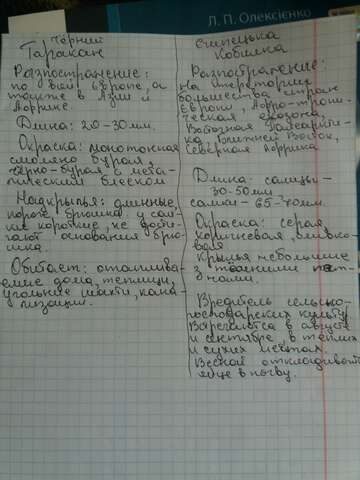 Л. П. Олексієнко
Чёрний
Таракан
Разпостранение:
по всей Европе, а
также в Азии и
Африке.
Длина: 20-30мм.
Окраска: монотонная
смоляно бурая,
черно-бурая с мета-
лическим блеском
Надкрылья: длинные,
короче брюшка у сам-
ки короткие, не дости-
гают основания брю-
шка.
Обитает: отаплива-
емие дома, теплицы,
угольние шахти, кана-
лизации.
Египецька
Кобилка
Разпостранение:
На территории
большества стран
Европи, Афро-тропи-
ческая екозона,
Восточная Палеаркти-
ка, Ближний Восток,
Северная Африка
Длина: самци-
30-50мм.
самки- 65-70мм.
Окраска: серая,
коричневая, оливко-
вая
Крылья небольшие
з темними пят-
нами.
Вредитель сельско-
господарских культур.
Встречается в августе
и сентябре, в теплих
и сухих местах.
Весной откладивает
яйце в почву.